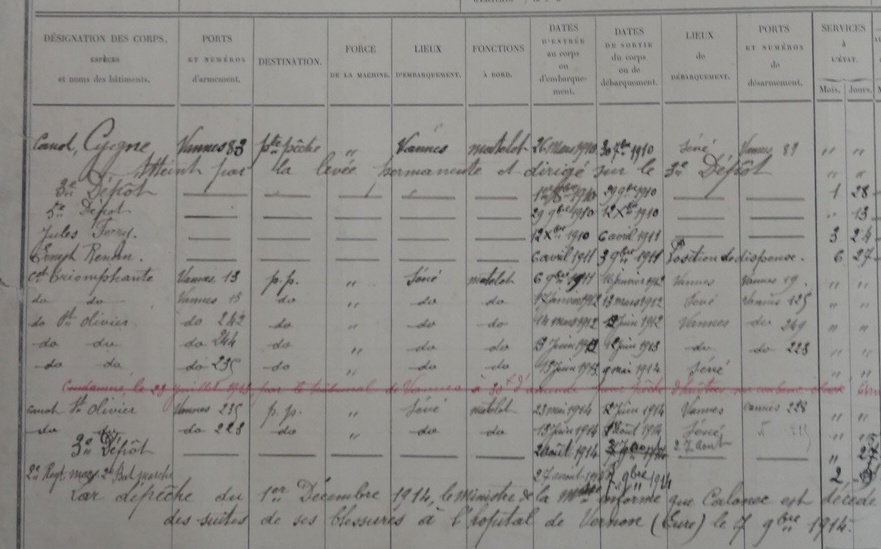 DÉSIGNATION DES CORPS, ESPÈCES et noms des bâtiments. PORTS ET NUMÉROS d'armement. DESTINATION. FORCE DE LA MACHINE. LIEUX D'EMBARQUEMENT. FONCTIONS À BORD. DATES D'ENTRÉE au corps ou d'embarque-ment. DATES DE SORTIE du corps ou de débarquement. LIEUX de DÉBARQUEMENT. PORTS ET NUMÉROS de désarmement. SERVICES à L'ÉTAT. Mois. Jours.
Canot, Cygne Vannes 83 pte pêche " Vannes matelot 26 mars 1910 30 7bre 1910 Séné Vannes 89 " "
Atteint par la levée permanente et dirigé sur le 3e Dépôt
3e Dépôt 1910 29 9bre 1910 1 28
5e Dépôt 29 9bre 1910 12 Xbre 1910 " 13
Jules Ferry. 12 Xbre 1910 6 avril 1911 3 24
Ernest Renan. 6 avril 1911 3 9bre 1911 Position de dispense. 6 27
ct Triomphante Vannes 13 p.p. " Séné matelot 6 1911 16 janvier 1912 Vannes Vannes 19 " "
do do Vannes 15 do " do do 17 janvier 1912 13 mars 1912 Séné Vannes 135 " "
do St Olivier do 242 do " do do 14 mars 1912 juin 1912 Vannes do 249 " "
do do do 244 do " do do juin 1912 12 juin 1913 do do 228 " "
do do do 235 do " do do 13 juin 1913 9 mai 1914 Séné " "
Condamné le 28 juillet par le tribunal de Vannes à d'amende pour pêche
canot St Olivier Vannes 235 p.p. " Séné matelot 23 mai 1914 12 juin 1914 Vannes Vannes 228 " "
do do do 228 do " do do 13 juin 1914 août 1914 Séné " "
3e Dépôt 2 août 1914 27 août 1914 27 août "
2e Regt 27 août 7 9bre 1914 2
Par dépêche du 1er Décembre 1914, le ministre de la informe que Calonec est décédé
des suites de ses blessures à l'hôpital de Vernon (Eure) le 7 9bre 1914.